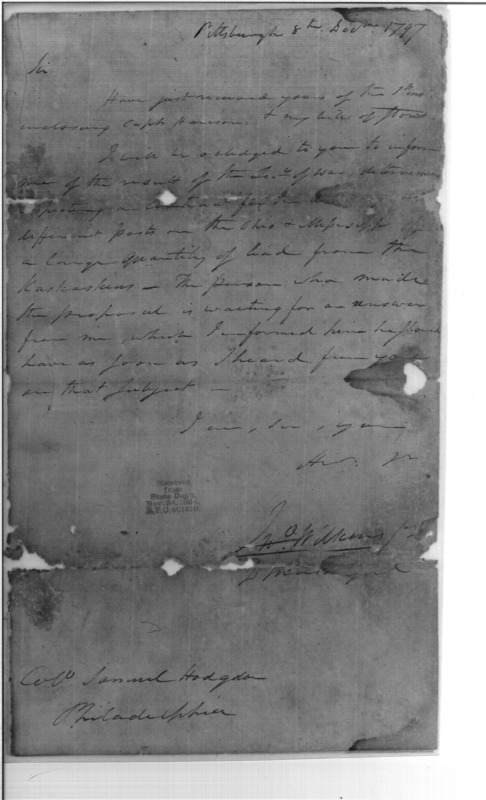 Pittsburgh 8th Decr 1797
Sir
Have just received yours of the 1st Inst
inclosing Capt Harrisons & my bills of stores
I will be obliged to you to inform
me of the result of the Secy of War, determination
respecting a contract for the
different posts on the Ohio & Mississippi of
a large quantity of lead from the
Kaskaskias - The person who made
the proposal is waiting for an answer
from me which I informed him he should
have as soon as I heard from you
on that subject -
I am, Sir, your
Hu: Sr
Jno Wilkins Jr
Colo Samuel Hodgdon
Philadelphia
Received
from
State Dept.